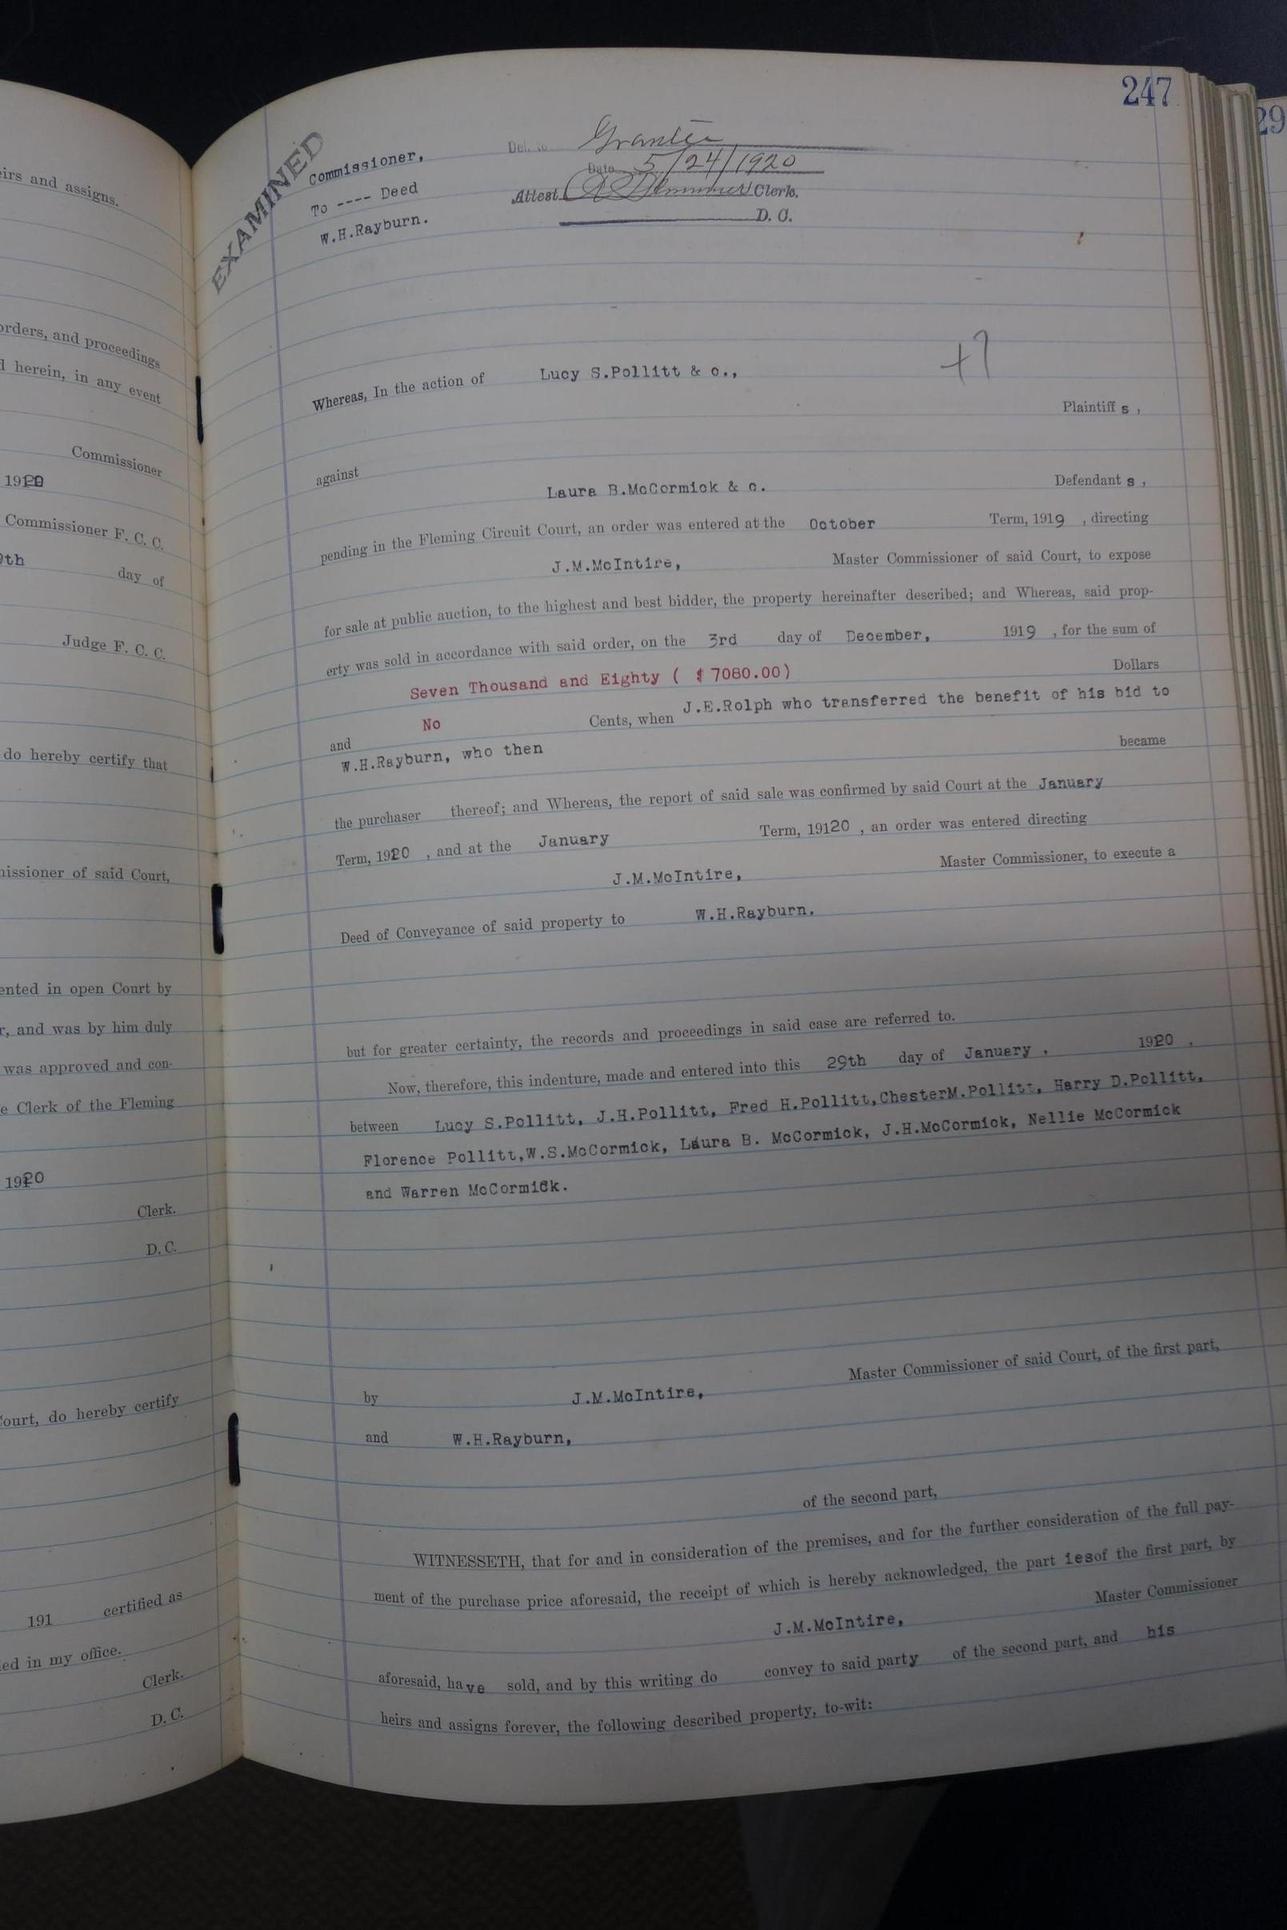 irs and assigns.
orders, and proceedings
herein, in any event
Commissioner
1920
Commissioner F. C. C.
9th day of
Judge F. C. C.
do hereby certify that
missioner of said Court,
ented in open Court by
r, and was by him duly
was approved and con-
e Clerk of the Fleming
1920
Clerk.
D. C.
Court, do hereby certify
191 certified as
ed in my office.
Clerk.
D. C.
247
29
EXAMINED
Commissioner,
To ---- Deed
W.H.Rayburn.
Del. to Grantee
Date 5/24/1920
Attest Clerk.
D. C.
Whereas, In the action of Lucy S.Pollitt & c.,
Plaintiff s ,
against
Laura B.McCormick & c. Defendant s ,
pending in the Fleming Circuit Court, an order was entered at the October Term, 1919 , directing
J.M.McIntire, Master Commissioner of said Court, to expose
for sale at public auction, to the highest and best bidder, the property hereinafter described; and Whereas, said prop-
erty was sold in accordance with said order, on the 3rd day of December, 1919 , for the sum of
Seven Thousand and Eighty ( $ 7080.00) Dollars
and No Cents, when J.E.Rolph who transferred the benefit of his bid to
W.H.Rayburn, who then became
the purchaser thereof; and Whereas, the report of said sale was confirmed by said Court at the January
Term, 1920 , and at the January Term, 19120 , an order was entered directing
J.M.McIntire, Master Commissioner, to execute a
Deed of Conveyance of said property to W.H.Rayburn.
but for greater certainty, the records and proceedings in said case are referred to.
Now, therefore, this indenture, made and entered into this 29th day of January , 1920 ,
between Lucy S.Pollitt, J.H.Pollitt, Fred H.Pollitt,ChesterM.Pollitt, Harry D.Pollitt,
Florence Pollitt,W.S.McCormick, Laura B. McCormick, J.H.McCormick, Nellie McCormick
and Warren McCormick.
by J.M.McIntire, Master Commissioner of said Court, of the first part,
and W.H.Rayburn,
of the second part,
WITNESSETH, that for and in consideration of the premises, and for the further consideration of the full pay-
ment of the purchase price aforesaid, the receipt of which is hereby acknowledged, the part iesof the first part, by
J.M.McIntire, Master Commissioner
aforesaid, have sold, and by this writing do convey to said party of the second part, and his
heirs and assigns forever, the following described property, to-wit: